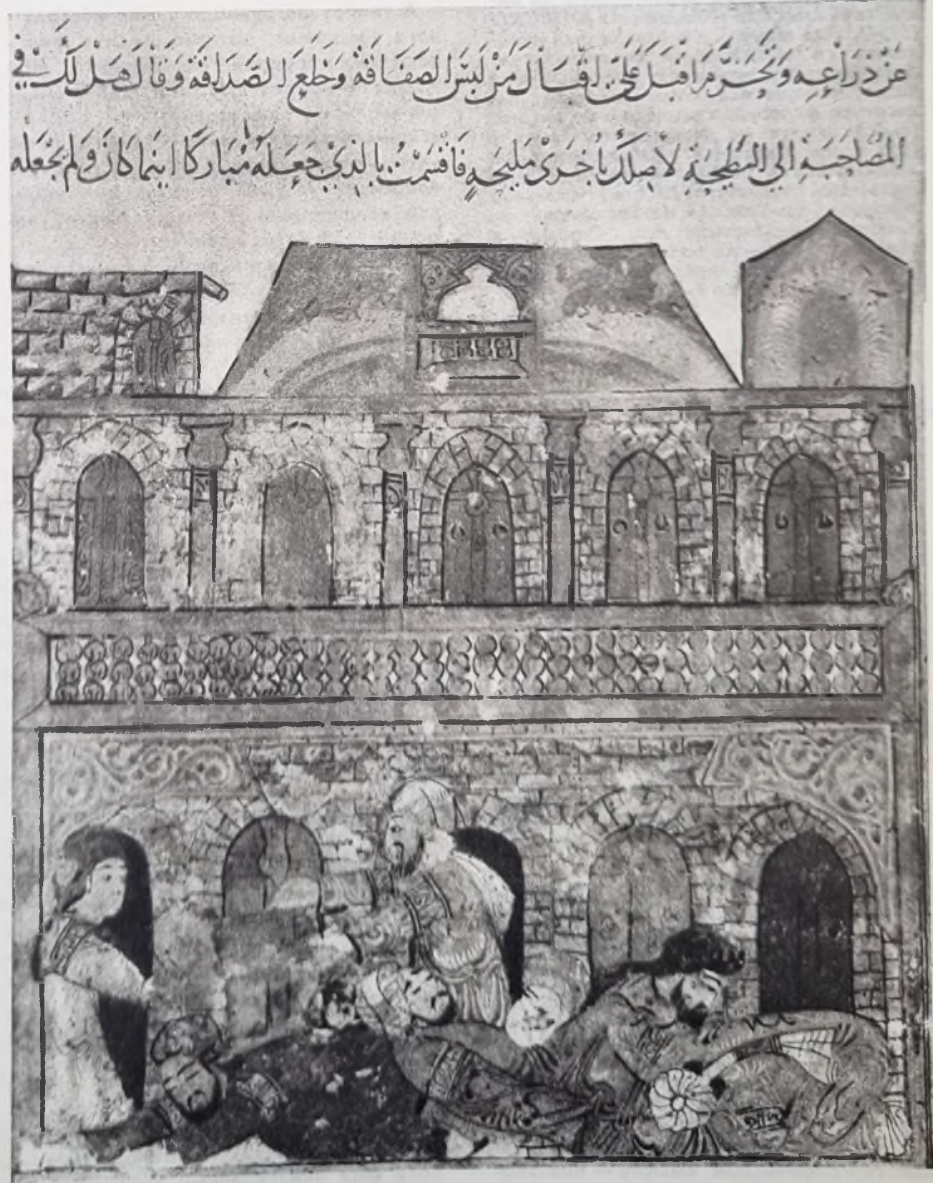 عَنْ ذِرَاعِهِ وَتَحَزَّمَ وَاقْبَلَ عَلَيَّ اقْبَالَ مَنْ لَبِسَ الصَفَاقَةَ وَخَلَعَ الصَّدَاقَةَ وَقَالَ هَلْ لَكَ فِي
المُصَاحَبَةِ الي البَطِيحَةِ لأَصِلَكَ بأُخرَيْ مَلِيحَهٍ فَاقْسَمْتُ بِالذِيْ جَعَلَهُ مُبَارَكًا اينَمَا كانَ وَلم يَجْعَلْهُ